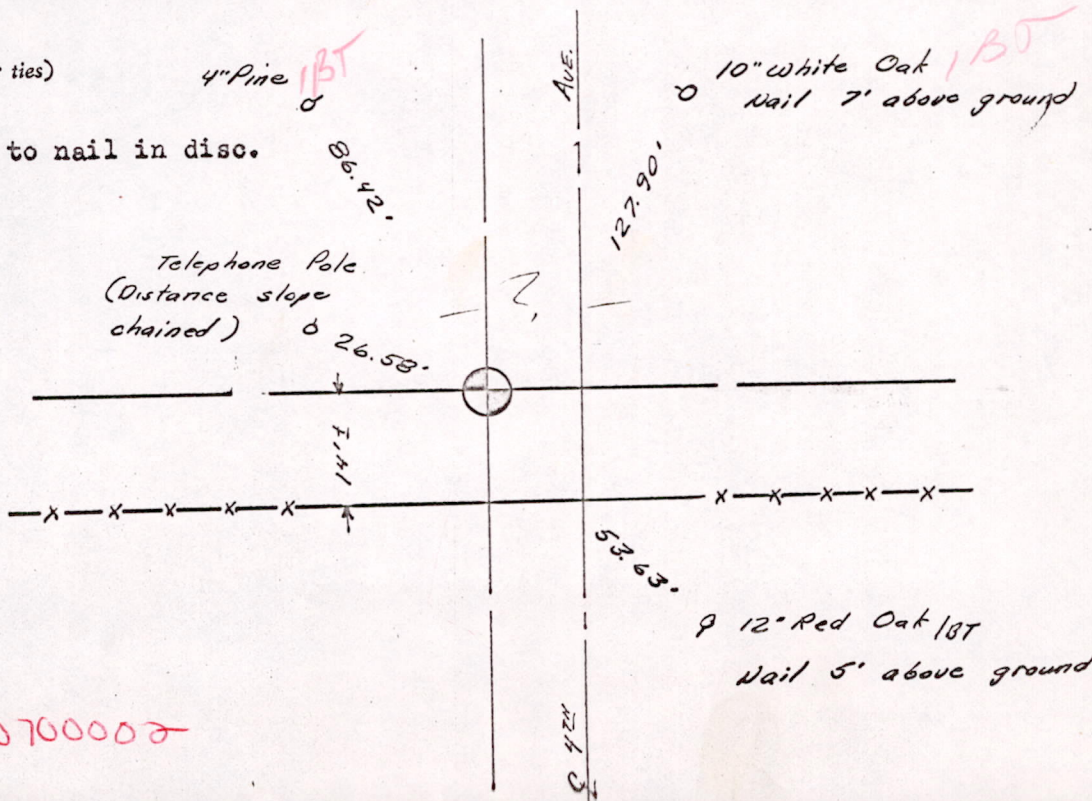 ties)
4" Pine 1BT
AVE.
10" white Oak 1BT
Nail 7' above ground
to nail in disc.
86.42'
127.90'
Telephone Pole
(Distance slope
chained)
26.58'
?
53.63'
12" Red Oak 1BT
Nail 5' above ground
700002